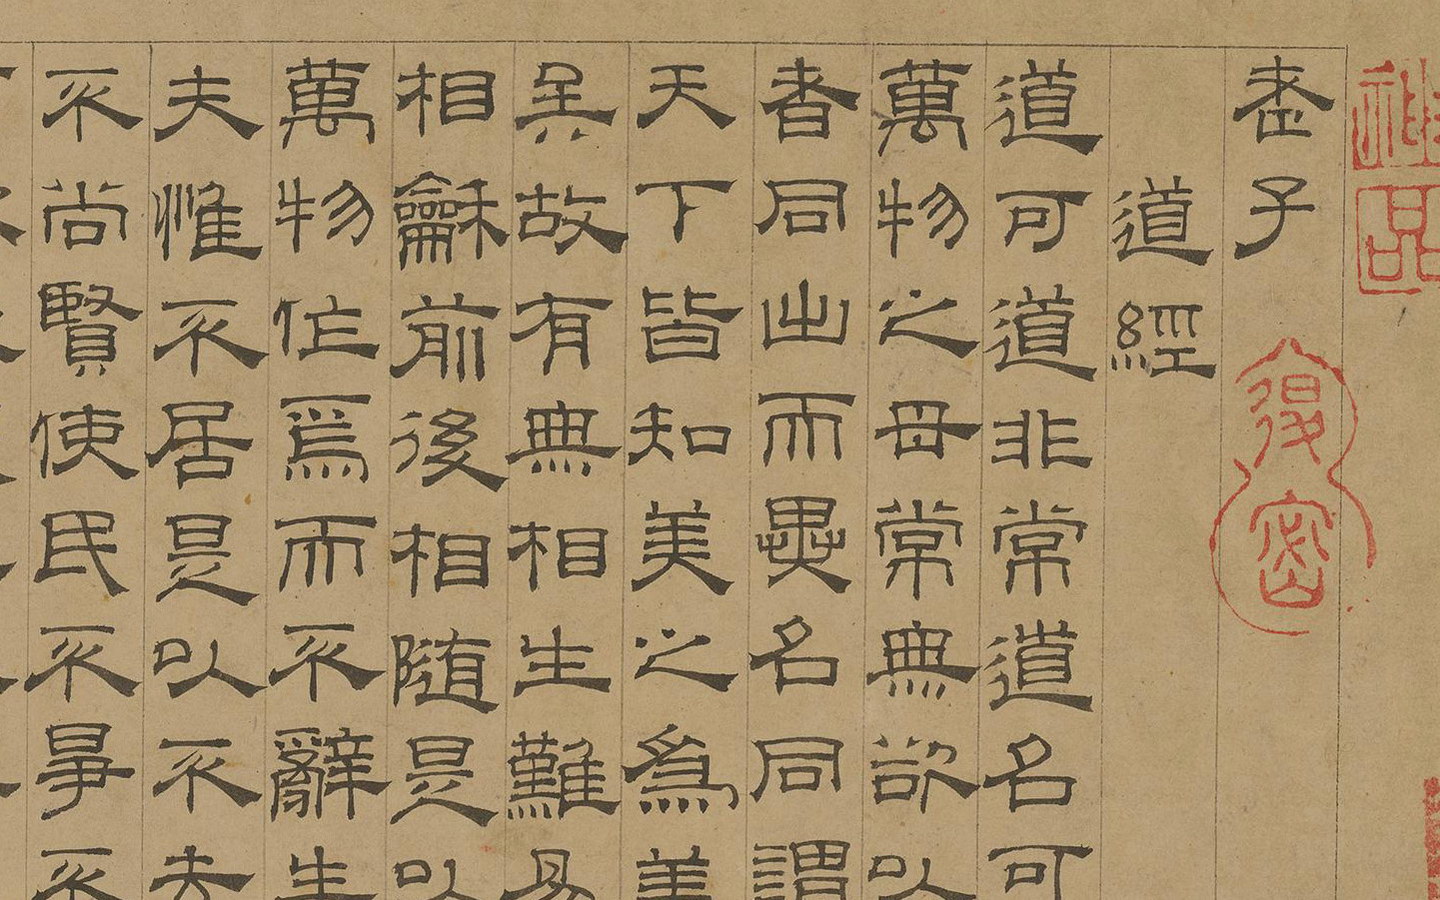 神品
退密
老子
道經
道可道非常道名可
萬物之母常無欲以
者同出而異名同謂
天下皆知美之為美
矣故有無相生難易
相龢前後相隨是以
萬物作焉而不辭生
夫惟不居是以不去
不尚賢使民不爭不